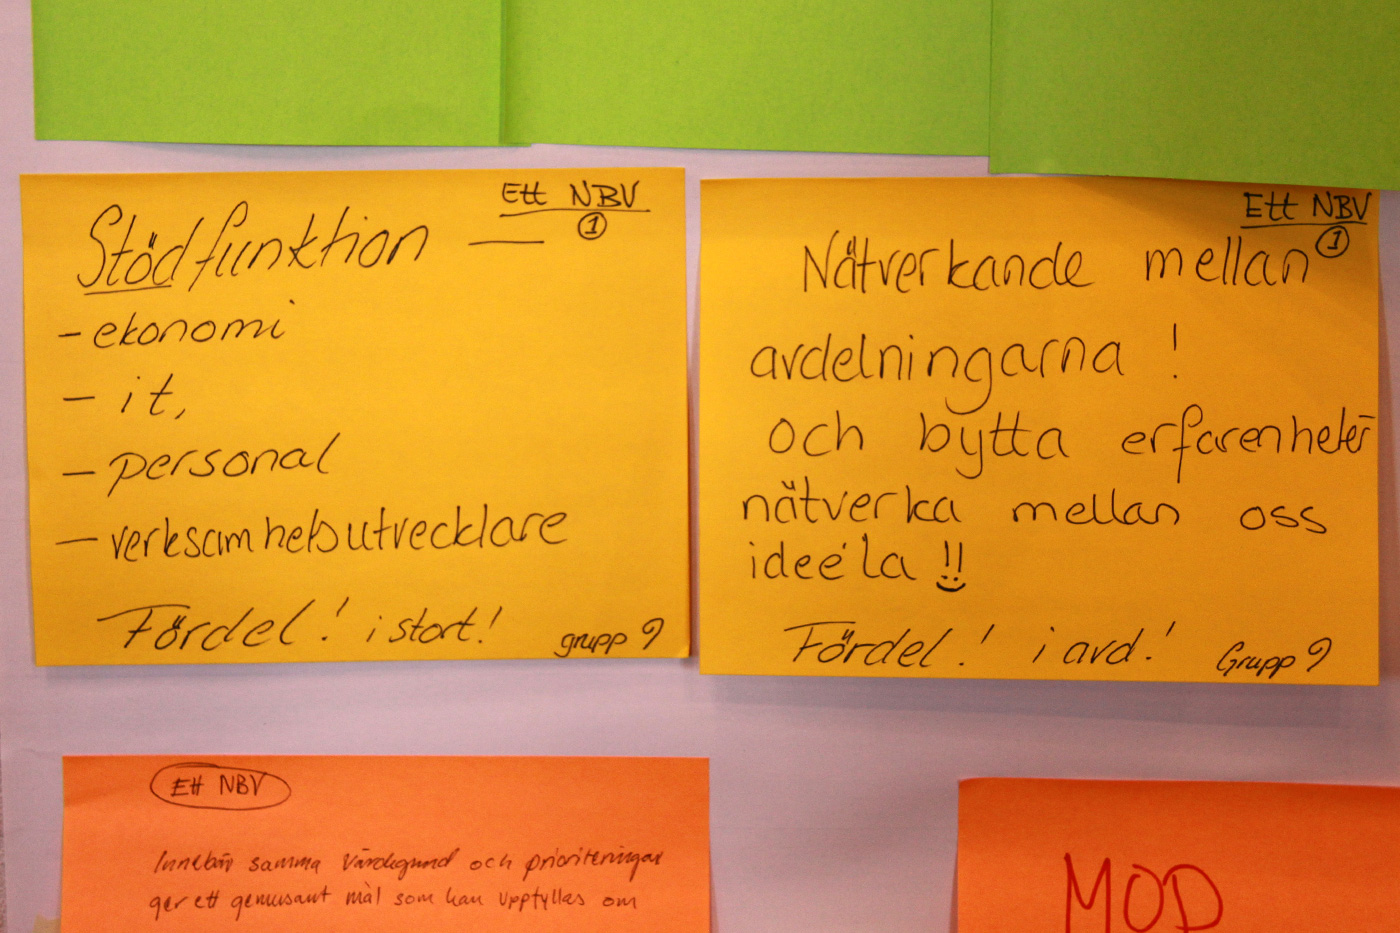 Ett NBV
1
Stödfunktion —
- ekonomi
- it,
- personal
- verksamhetsutvecklare
Fördel! i stort!
grupp 9
Ett NBV
1
Nätverkande mellan
avdelningarna !
och bytta erfarenheter
nätverka mellan oss
ideéla !!
Fördel! i avd!
Grupp 9
Ett NBV
Innebär samma värdegrund och prioriteringar
ger ett gemensamt mål som kan uppfyllas om
MOD